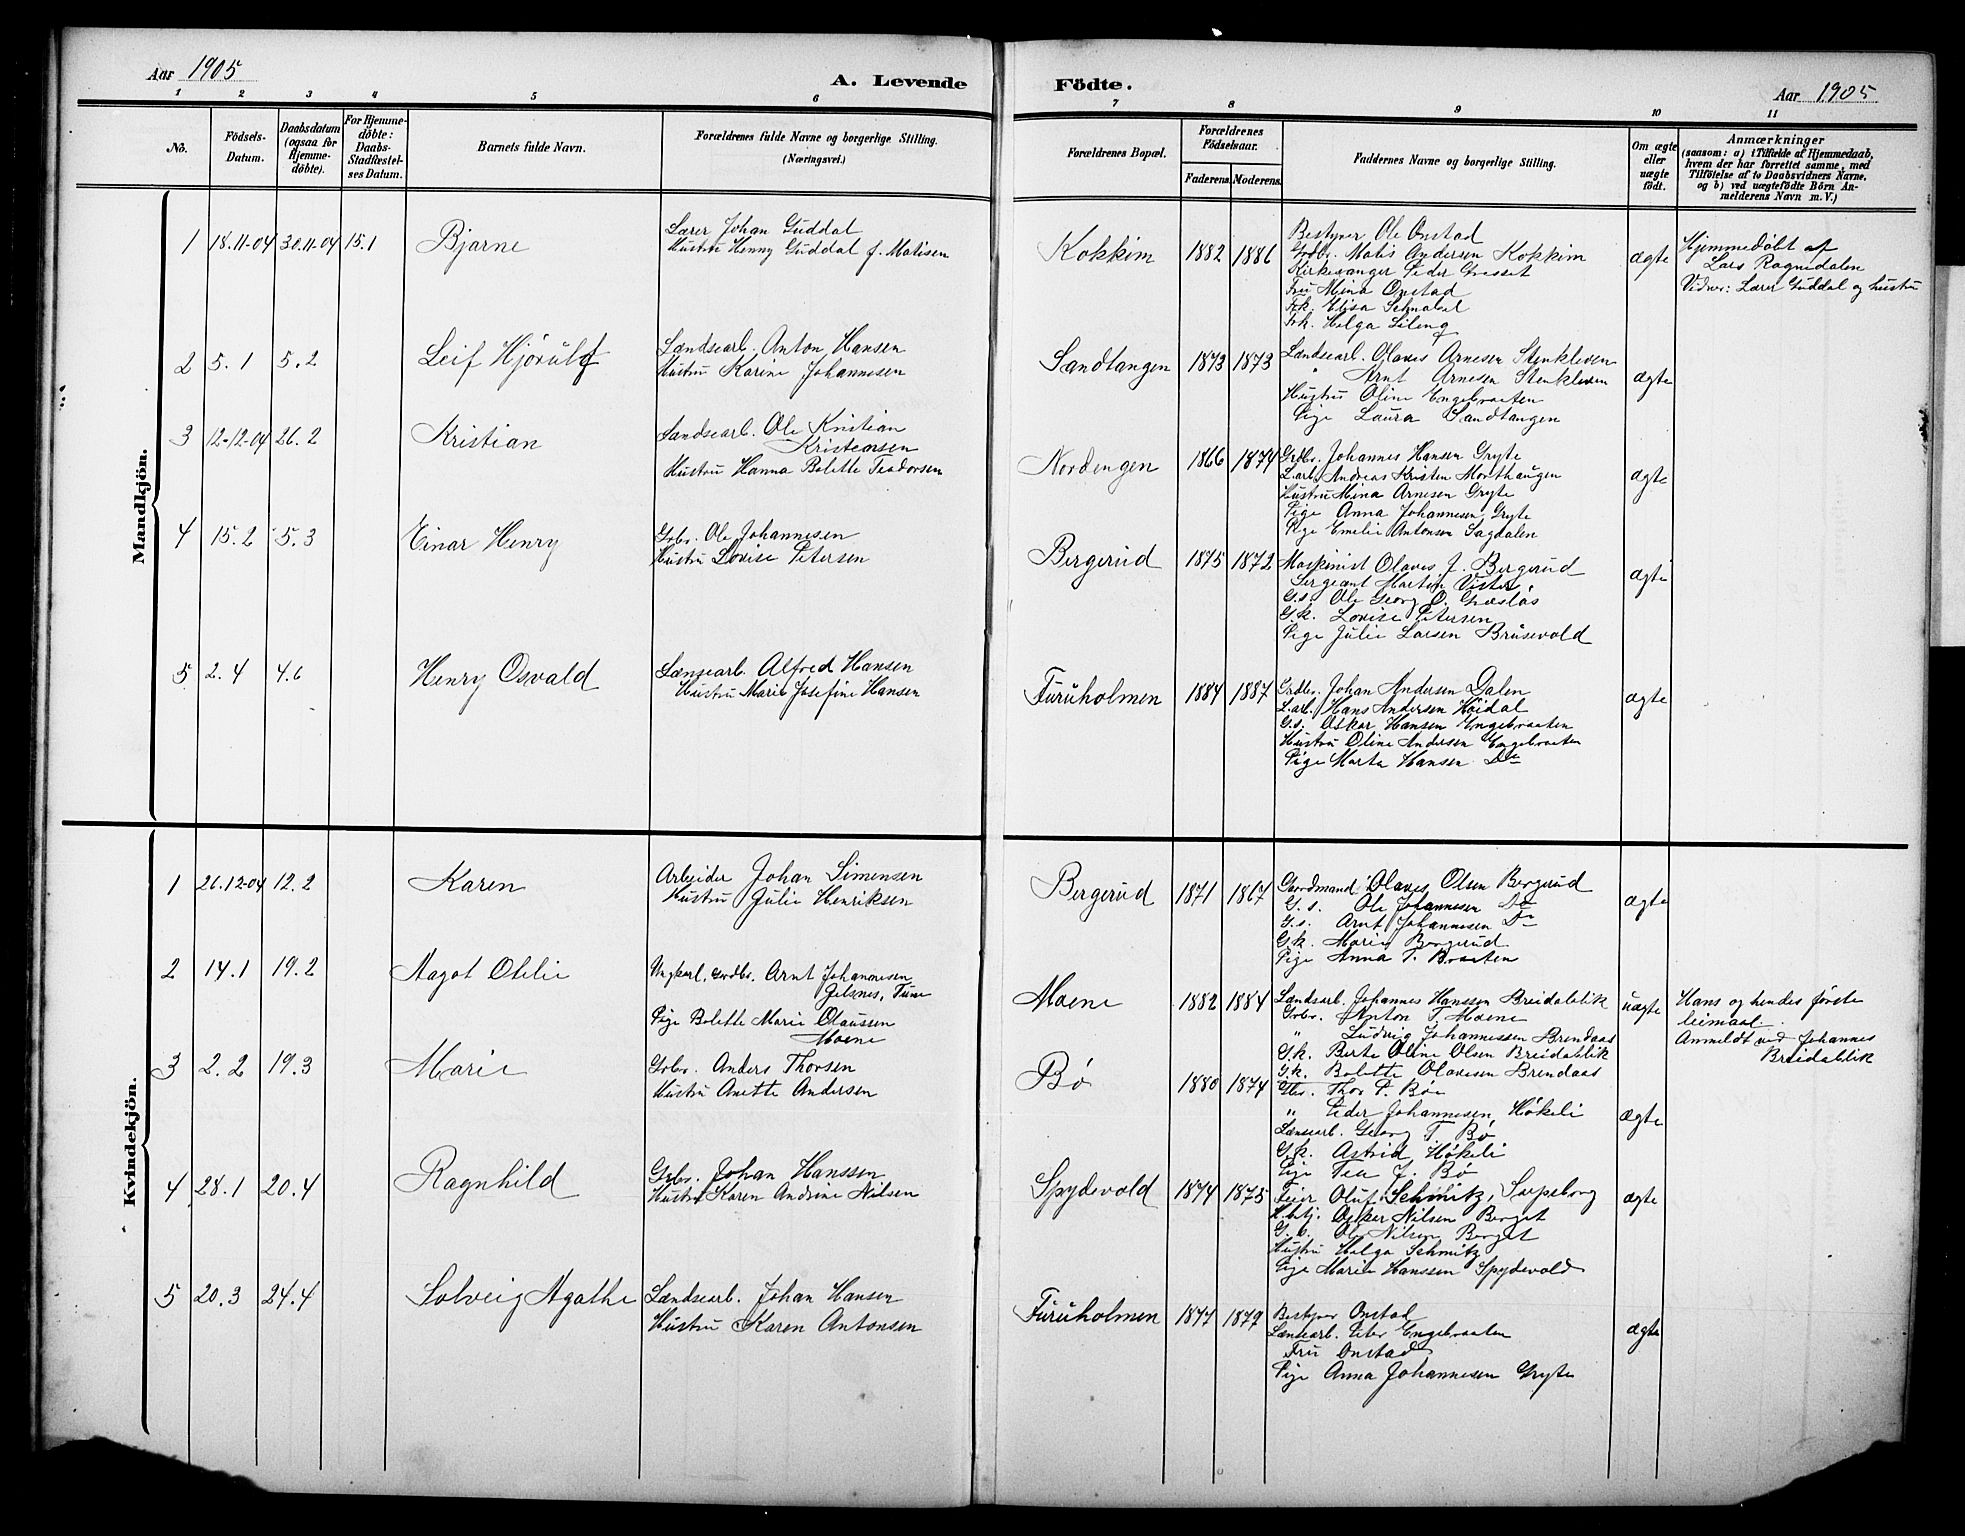 Aar 1905
A. Levende
Födte.
Aar 1905
1 2 3 4 5 6
7 8 9 10 11
No.
Födsels-Datum.
Daabsdatum (ogsaa for Hjemme-döbte).
For Hjemme-döbte: Daabs-Stadfæstel-ses Datum.
Barnets fulde Navn.
Forældrenes fulde Navne og borgerlige Stilling.
(Næringsvei.)
Forældrenes Bopæl.
Forældrenes Födselsaar.
Faderens. Moderens.
Faddernes Navne og borgerlige Stilling.
Om ægte eller uægte födt.
Anmærkninger
(saasom: a) i Tilfælde af Hjemmedaab,
hvem der har forrettet samme, med
Tilföielse af to Daabsvidners Navne,
og b) ved uægtefödte Börn An-
melderens Navn m. V.)
Mandkjön.
1 18.11-04 30.11-04 15.1 Bjarne
Lærer Johan Guddal
Hustru Henny Guddal f. Matisen
Kokkim 1882 1886
Bestyrer Ole Onstad
Grdbr. Matis Andersen Kokkim
Kirkesanger Peder Gresset
Fru Mina Onstad
Frk. Elisa Schnabel
Frk. Helga Lileng
ægte
Hjemmedøbt af
Lars Ragnedalen
Vidner: Lærer Guddal og hustru
2 5.1 5.2 Leif Hjörulf
Landsearb. Anton Hansen
Hustru Karine Johannesen
Sandtangen 1873 1873
Lændsearb. Olaves Arnesen Stenkleven
" Arnt Arnesen Stenkleven
Hustru Oline Engebraaten
Pige Laura Sandtangen
ægte
3 12-12-04 26.2 Kristian
Landsearb. Ole Kristian
Kristensen
Hustru Hanna Bolette Teodorsen
Nordengen 1866 1874
Grdbr. Johannes Hansen Gryte
L.arb. Andreas Kristen Morthaugen
Hustru Mina Arnesen Gryte
Pige Anna Johannesen Gryte
Pige Emelie Antonsen Sagdalen
ægte
4 15.2 5.3 Einar Henry
Grbr. Ole Johannesen
Hustru Lovise Petersen
Bergerud 1875 1872
Maskinist Olaves J. Bergerud
Sergeant Martin Vister
G.s. Ole Georg O. Græslös
G.k. Lovise Petersen
Pige Julie Larsen Brusevold
ægte
5 2.4 4.6 Henry Osvald
Lænsearb. Alfred Hansen
Hustru Marie Josefine Hansen
Furuholmen 1884 1887
Grdbr. Johan Andersen Dalen
L.arb. Hans Andersen Höidal
G.s. Oskar Hansen Engebraaten
Hustru Oline Andersen Engebraaten
Pige Marta Hansen Do
ægte
Kvindekjön.
1 26.12-04 12.2 Karen
Arbeider Johan Simensen
Hustru Julie Henriksen
Bergerud 1871 1867
Gaardmand Olaves Olsen Bergerud
G.s. Ole Johannesen Do
G.s. Arnt Johannesen Do
G.k. Marie Bergerud
Pige Anna T. Braaten
ægte
2 14.1 19.2 Aagot Otelie
Ungkarl, Grdbr. Arnt Johannesen
Jelsnes, Tune
Pige Bolette Marie Olaussen
Moene
Moene 1882 1884
Landsarb. Johannes Hanssen Breidablik
Grbr. Anton T. Moene
" Ludvig Johannessen Brendaas
G.k. Berte Oline Olsen Breidablik
G.k. Bolette Olavesen Brendaas
uægte
Hans og hendes første
leimaal.
Anmeldt ved Johannes
Breidablik
3 2.2 19.3 Marie
Grbr. Anders Thorsen
Hustru Anette Andersen
Bø 1880 1874
Gbr. Thor P. Bøe
" Peder Johannesen Høkeli
Lænsearb. Georg T. Bø
G.k. Astrid Høkeli
Pige Tea J. Bø
ægte
4 28.1 20.4 Ragnhild
Grbr. Johan Hanssen
Hustru Karen Andrine Nilsen
Spydevold 1874 1875
Feier Oluf Schmitz, Sarpsborg
H.betj. Osker Nilsen Berget
G.b. Ole Nilsen Berget
Hustru Helga Schmitz
Pige Marie Hanssen Spydevold
ægte
5 20.3 24.4 Solveig Agathe
Lændsearb. Johan Hansen
Hustru Karen Antonsen
Furuholmen 1877 1879
Bestyrer Onstad
Lænsearb. Peter Engebraaten
Fru Onstad
Pige Anna Johannesen Gryte
ægte